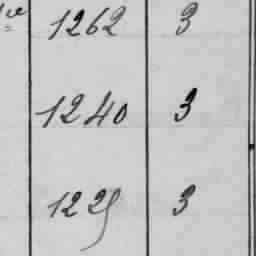 1262 3
1240 3
1225 3